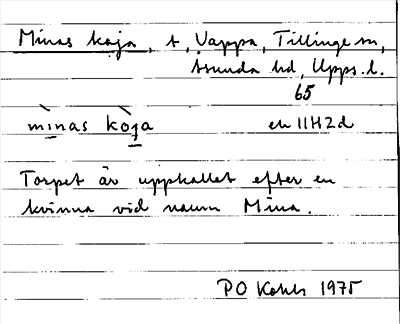 Minas koja, t, Vappa, Tillinge sn,
Åsunda hd, Upps. l.
65
mìnas kòja
ek 11H2d
Torpet är uppkallat efter en
kvinna vid namn Mina.
PO Kohls 1975